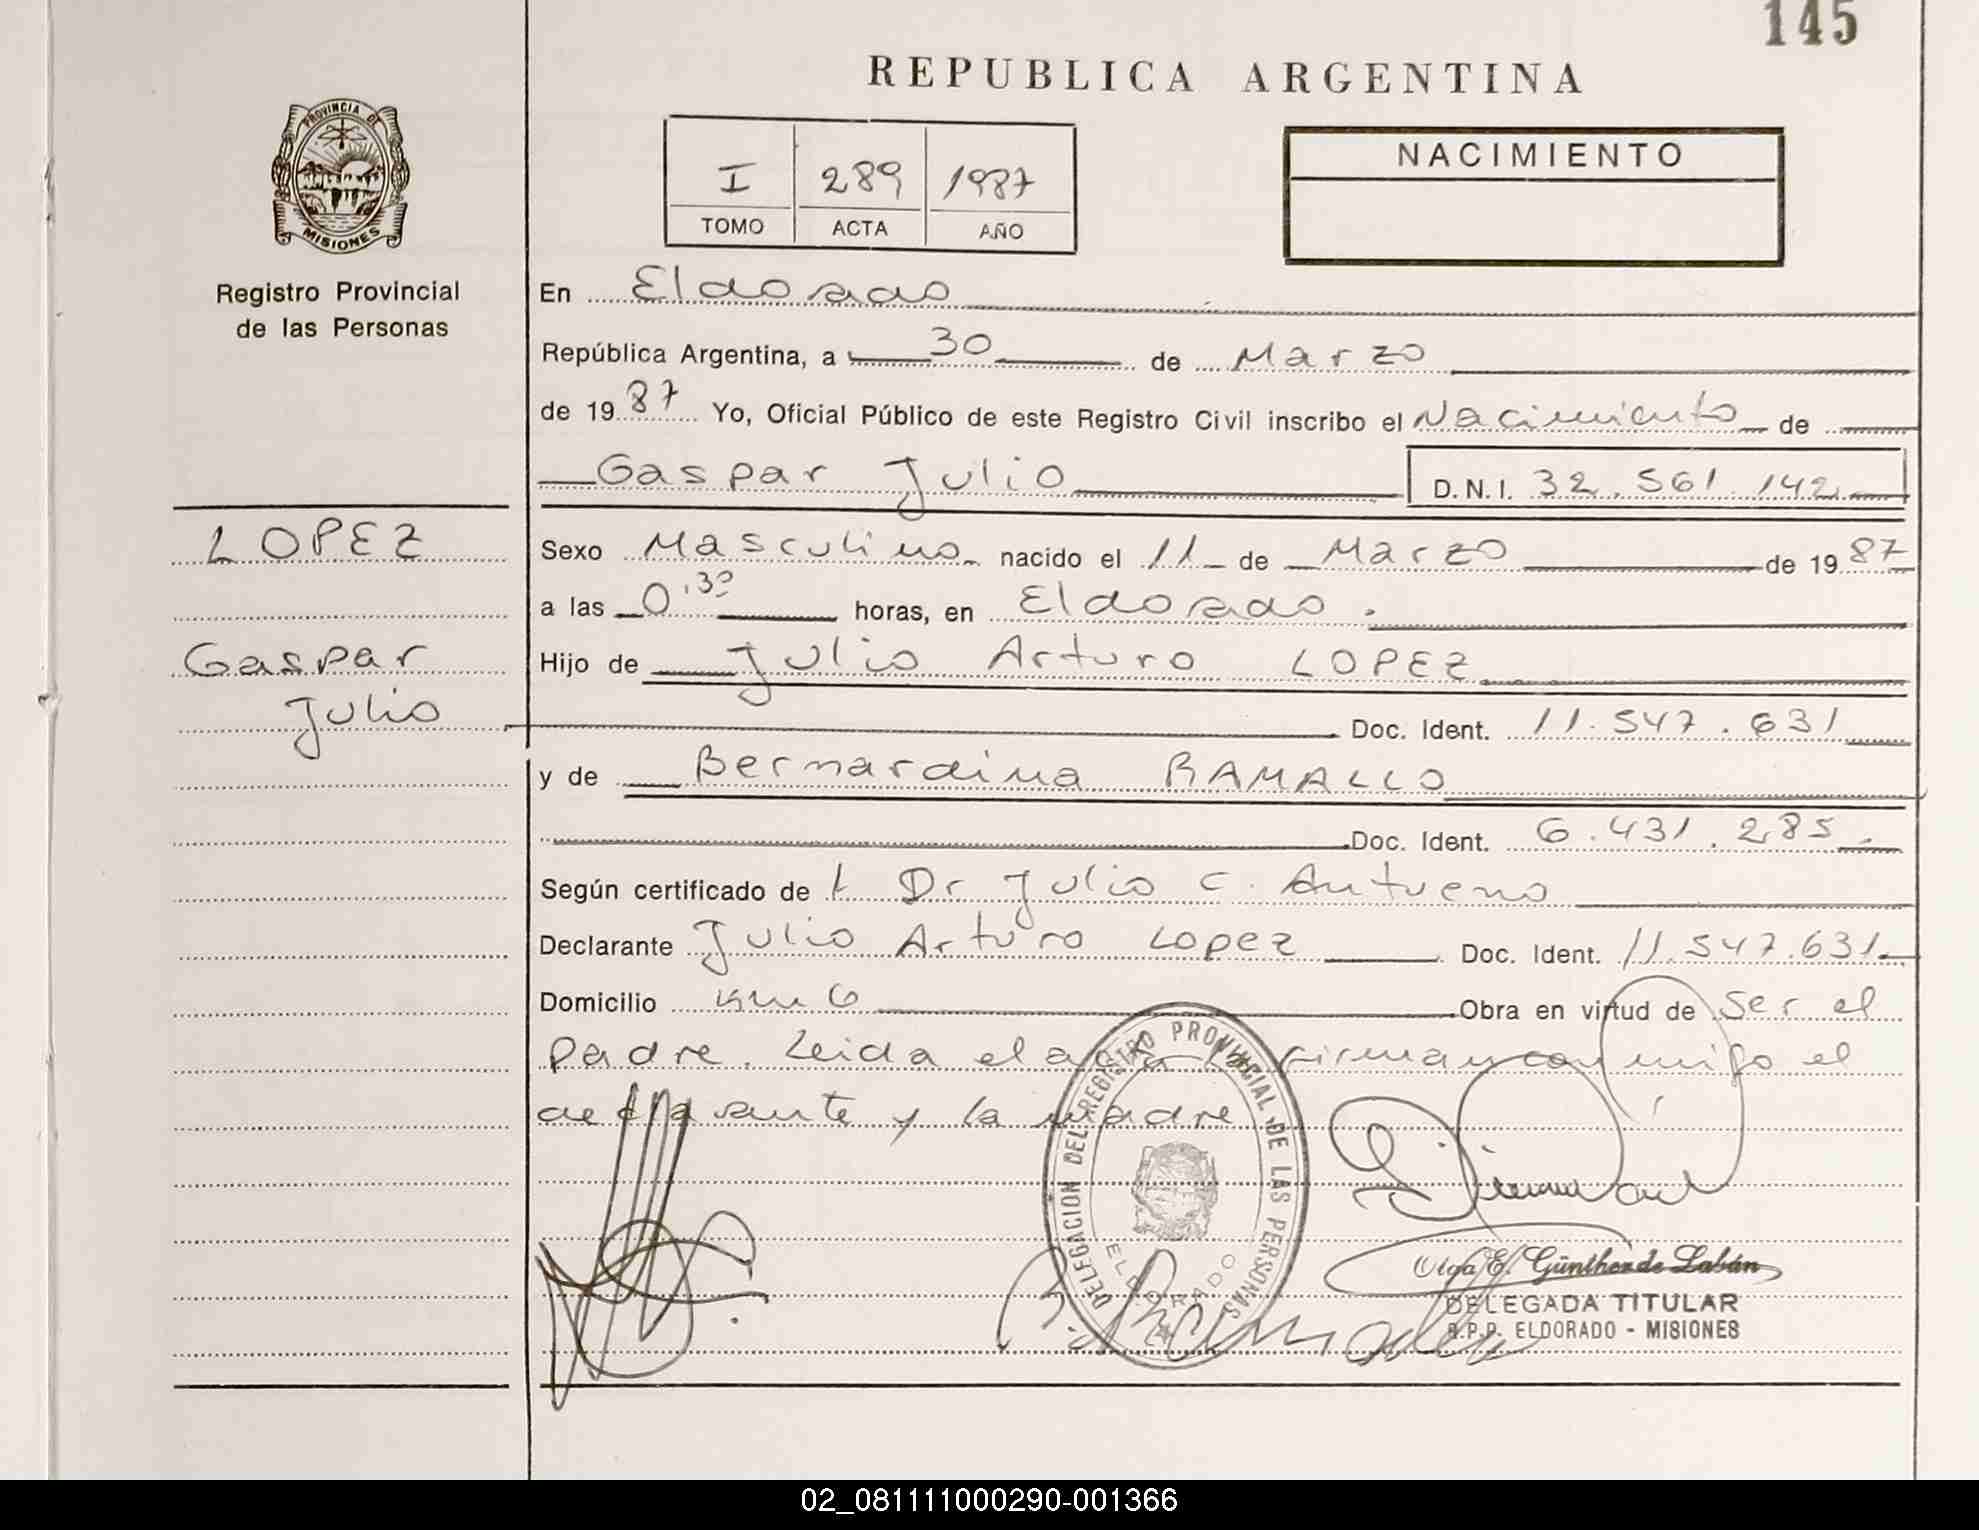 145
REPUBLICA ARGENTINA
PROVINCIA DE
MISIONES
Registro Provincial
de las Personas
I 289 1987
TOMO ACTA AÑO
NACIMIENTO
En Eldorado
República Argentina, a 30 de Marzo
de 1987 Yo, Oficial Público de este Registro Civil inscribo el Nacimiento de
Gaspar Julio D.N.I. 32.561.142
LOPEZ
Gaspar
Julio
Sexo Masculino nacido el 11 de Marzo de 1987
a las 0.30 horas, en Eldorado.
Hijo de Julio Arturo LOPEZ
Doc. Ident. 11.547.631
y de Bernardina RAMALLO
Doc. Ident. 6.431.285.
Según certificado de Dr Julio C. Antueno
Declarante Julio Arturo Lopez Doc. Ident. 11.547.631
Domicilio km 6 Obra en virtud de Ser el
padre. Leida el acta la firman conmigo el
declarante y la madre
DELEGACION DEL REGISTRO PROVINCIAL DE LAS PERSONAS
ELDORADO
B. Ramallo
Olga E. Günther de Labán
DELEGADA TITULAR
R.P.P. ELDORADO - MISIONES
02_081111000290-001366